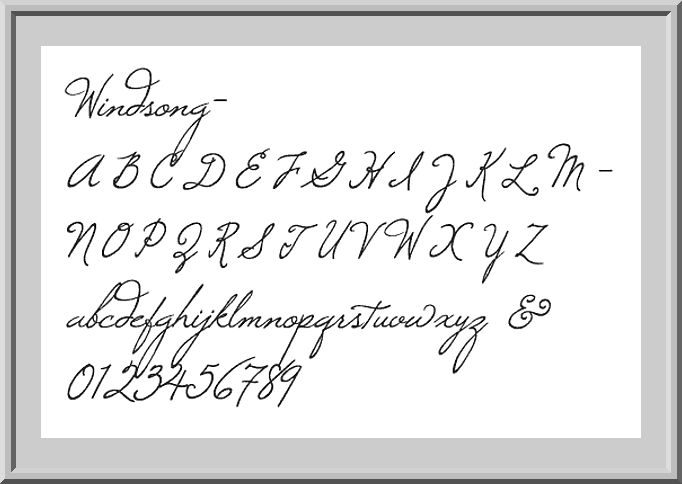 Windsong-
A B C D E F G H I J K L M -
N O P Q R S T U V W X Y Z
abcdefghijklmnopqrstuvwxyz &
0123456789